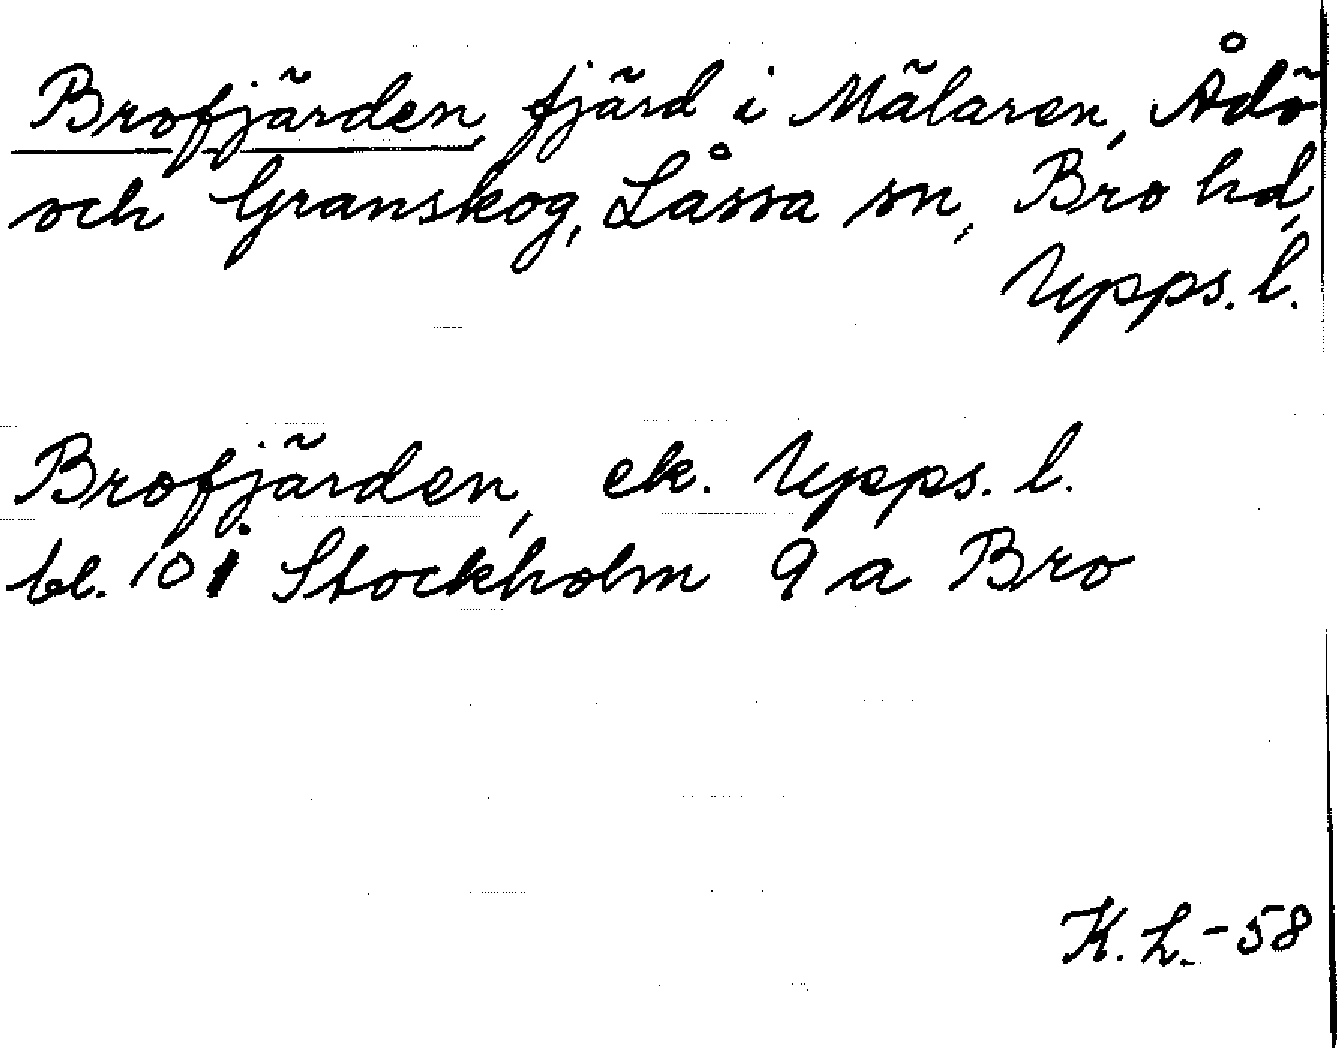 Brofjärden, fjärd i Mälaren, Ådö
och Granskog, Låssa sn, Bro hd,
Upps. l.
Brofjärden, ek. Upps. l.
bl. 101 Stockholm 9 a Bro
K. L. -58